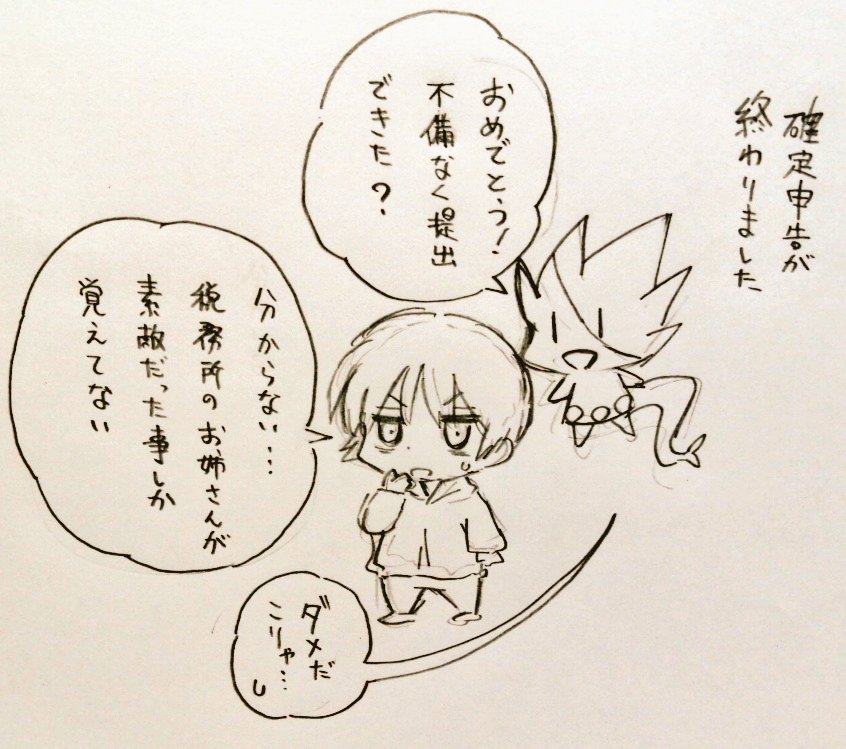 確定申告が
終わりました
おめでとう!
不備なく提出
できた?
分からない…
税務所のお姉さんが
素敵だった事しか
覚えてない
ダメだ
こりゃ…